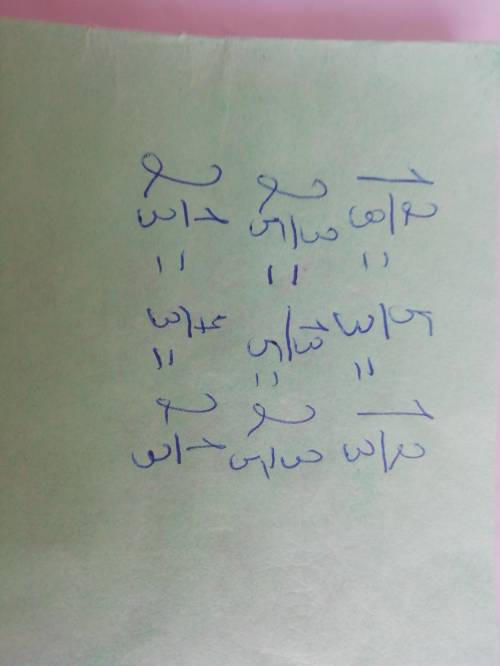 1 2/3 = 5/3 = 1 2/3
2 3/5 = 13/5 = 2 3/5
2 1/3 = 7/3 = 2 1/3